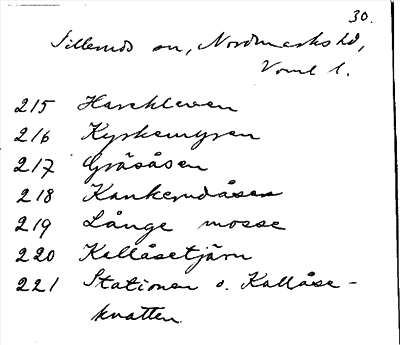 30.
Silleruds sn, Nordmarks hd,
Vrml l.
215 Harekleven
216 Kyrkemyren
217 Gråsåsen
218 Kankerudåsen
219 Långe mosse
220 Kallåsetjärn
221 Stationen o. Kallåse-
knatten